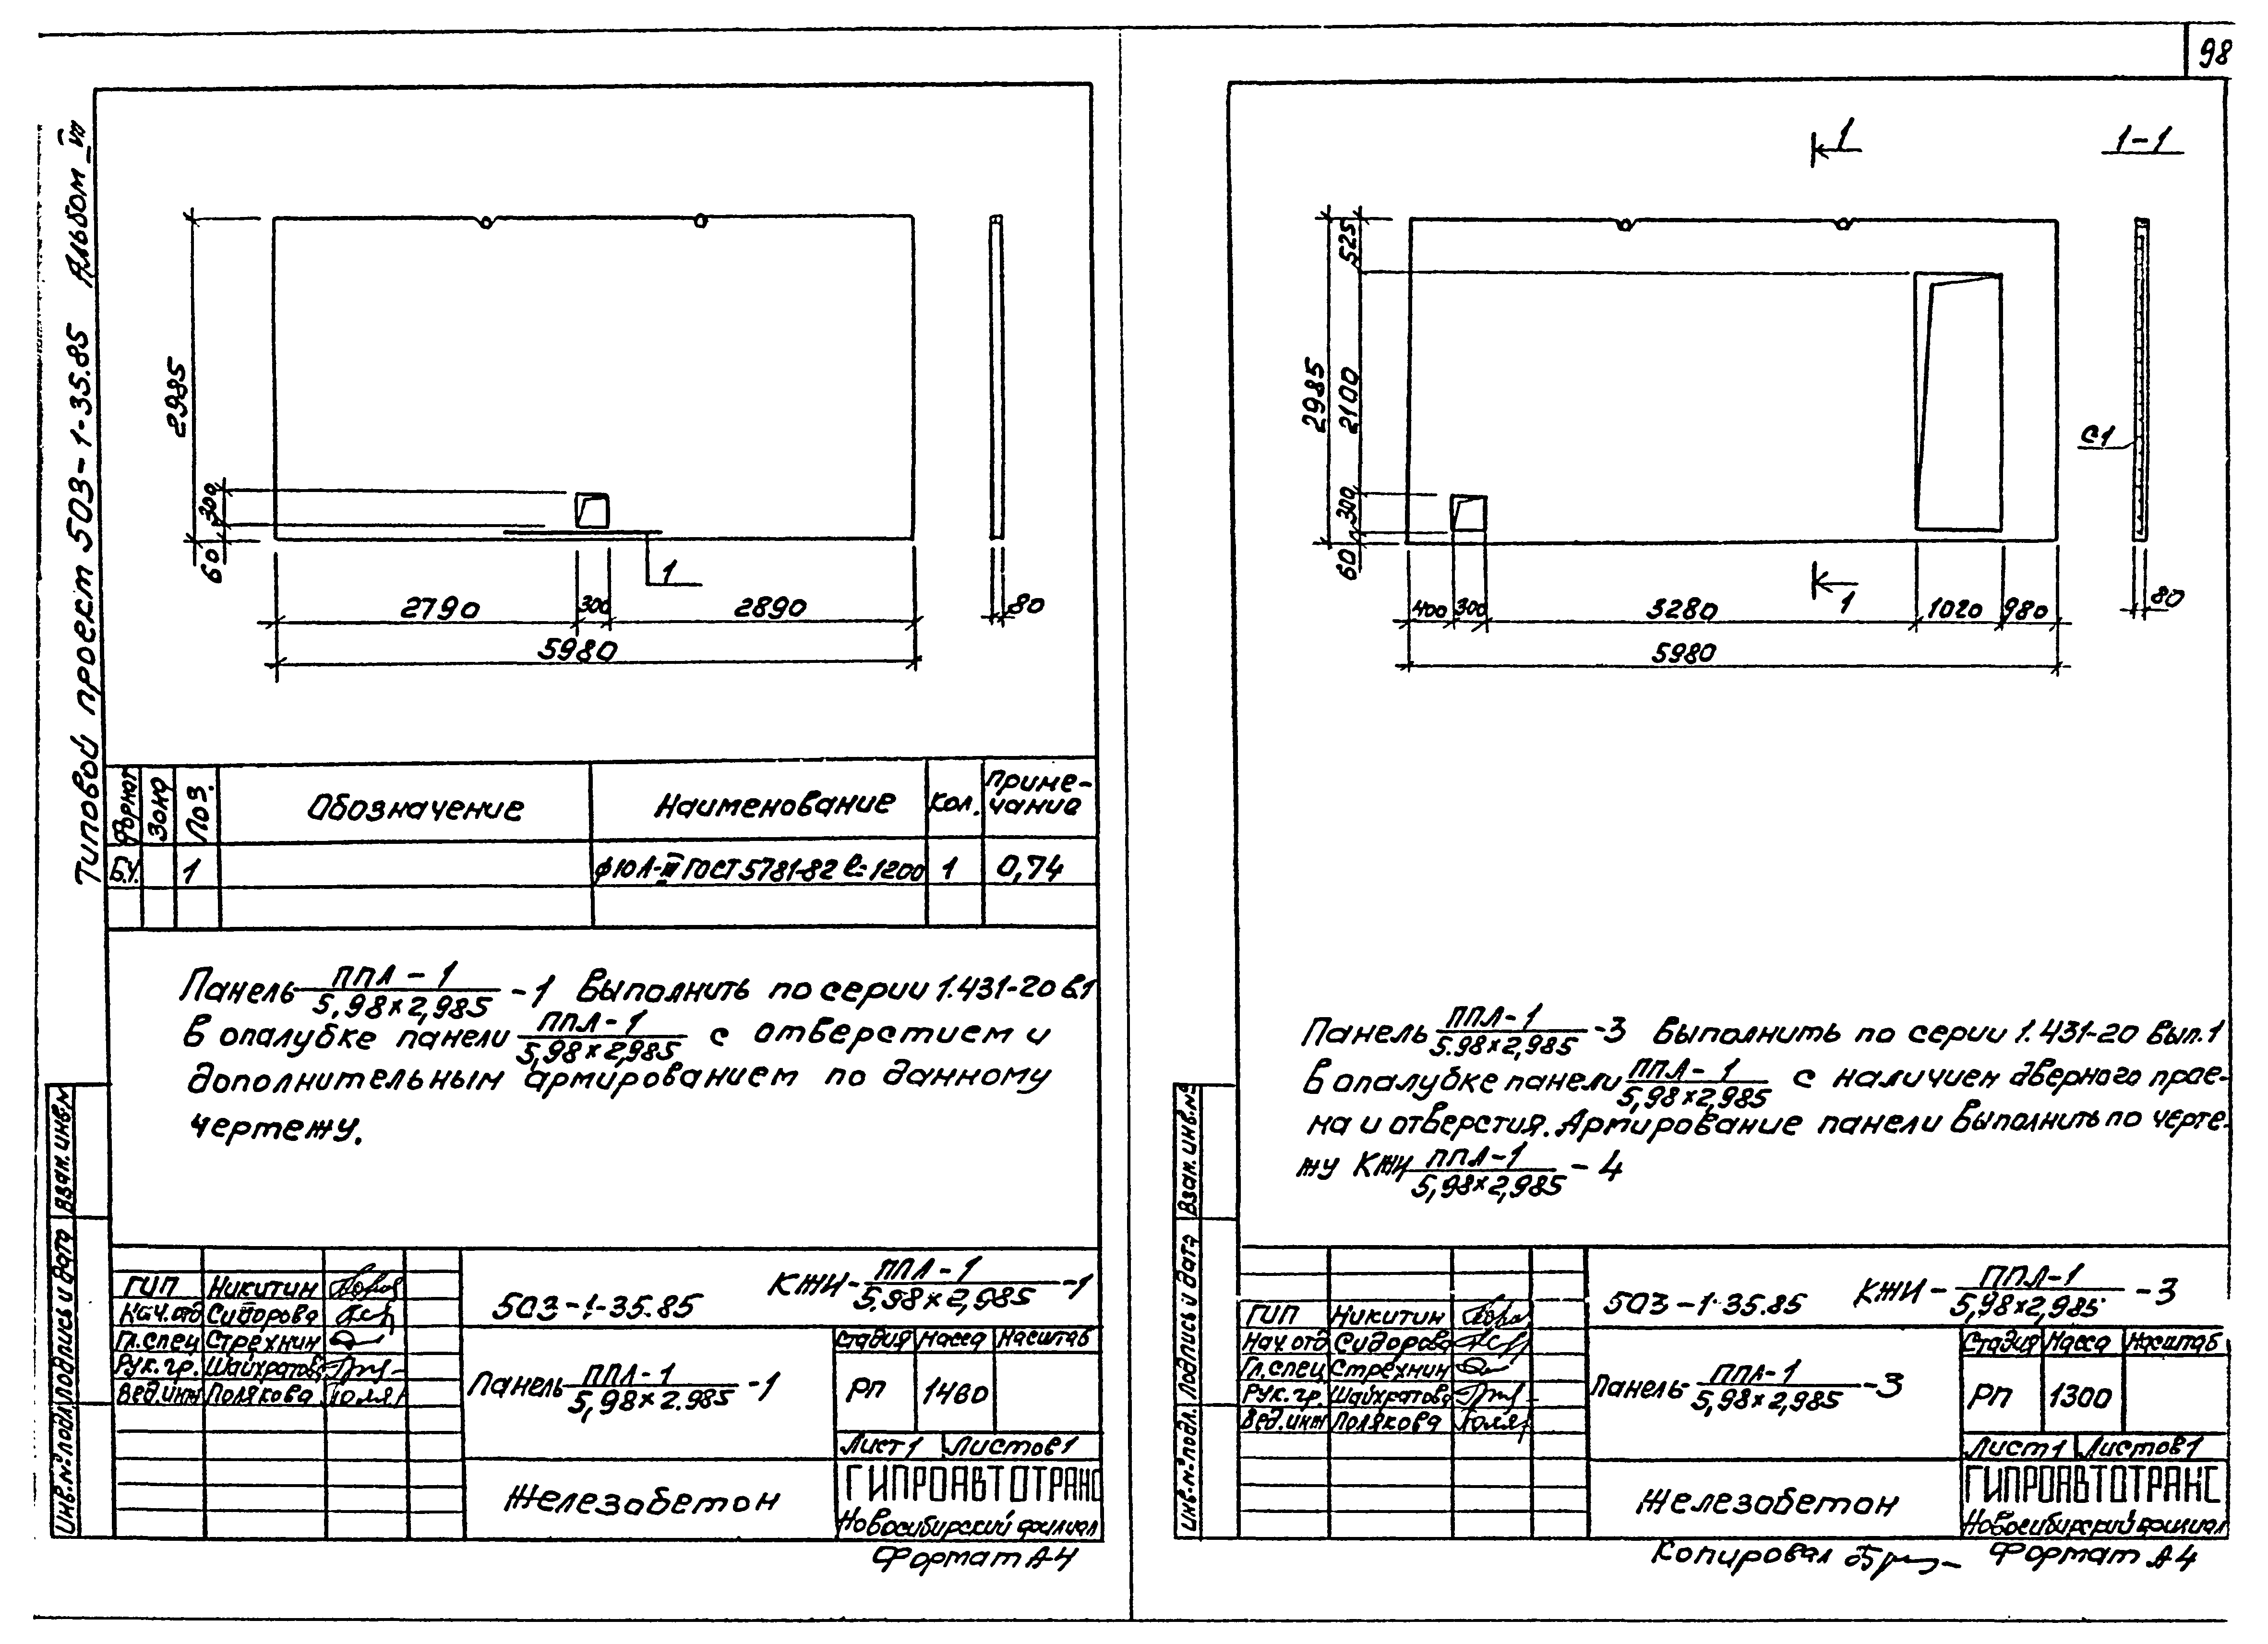 98
Типовой проект 503-1-35.85 Альбом
2985
300
60
1
2790
300
2890
80
5980
Формат
Зона
Поз.
Обозначение
Наименование
Кол.
Приме-
чание
Б.Ч.
1
ф10А-III ГОСТ 5781-82 l=1200
1
0,74
Панель ППЛ-1 / 5,98×2,985 -1 выполнить по серии 1.431-20 в.1
в опалубке панели ППЛ-1 / 5,98×2,985 с отверстием и
дополнительным армированием по данному
чертежу.
Инв.№подл.
Подпись и дата
Взам.инв.№
ГИП Никитин
Нач.отд Сидорова
Гл.спец Стрехнин
Рук.гр. Шайхратова
Вед.инж Полякова
503-1-35.85
КЖИ- ППЛ-1 / 5.98×2,985 -1
Панель ППЛ-1 / 5,98×2.985 -1
Стадия Масса Масштаб
РП 1460
Лист 1 Листов 1
Железобетон
ГИПРОАВТОТРАНС
Новосибирский филиал
Формат А4
1
1-1
525
2985
2100
300
60
С1
400
300
3280
1020
980
1
80
5980
Панель ППЛ-1 / 5.98×2,985 -3 выполнить по серии 1.431-20 вып.1
в опалубке панели ППЛ-1 / 5,98×2,985 с наличием дверного прое-
ма и отверстия. Армирование панели выполнить по черте-
жу КЖИ ППЛ-1 / 5,98×2,985 -4
Инв.№подл.
Подпись и дата
Взам.инв.№
ГИП Никитин
Нач.отд Сидорова
Гл.спец Стрехнин
Рук.гр. Шайхратова
Вед.инж Полякова
503-1-35.85
КЖИ- ППЛ-1 / 5,98×2,985 -3
Панель ППЛ-1 / 5,98×2,985 -3
Стадия Масса Масштаб
РП 1300
Лист 1 Листов 1
Железобетон
ГИПРОАВТОТРАНС
Новосибирский филиал
Копировал
Формат А4